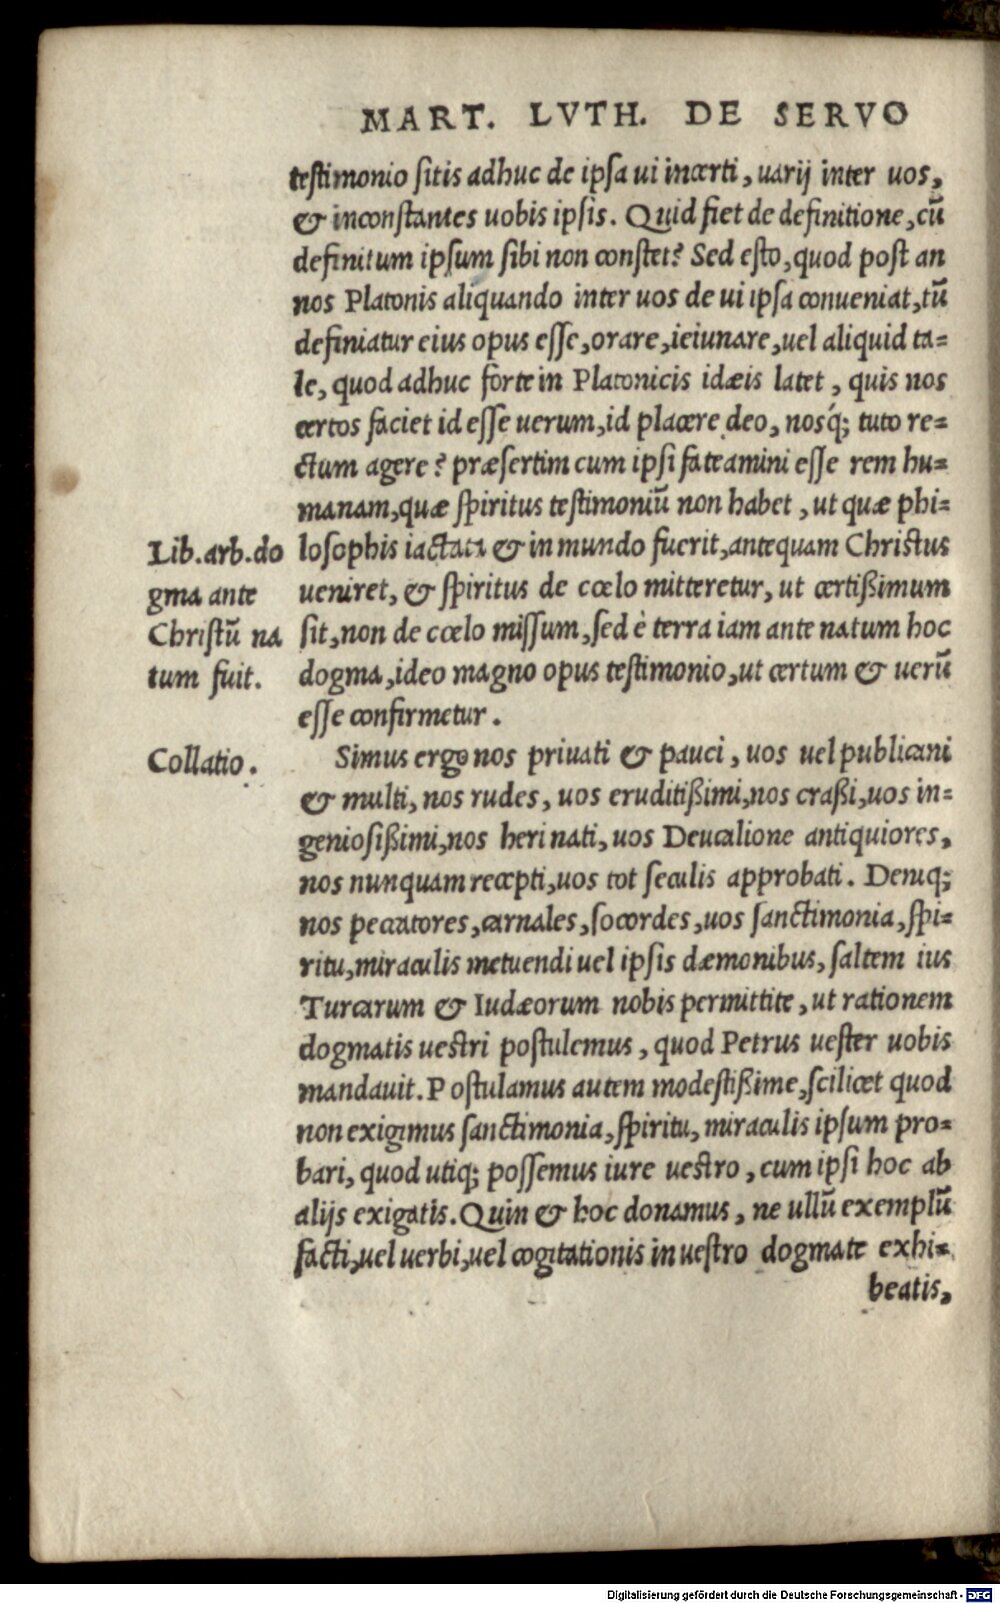 MART. LVTH. DE SERVO
testimonio sitis adhuc de ipsa ui incerti, uarij inter uos,
& inconstantes uobis ipsis. Quid fiet de definitione, cū
definitum ipsum sibi non constet? Sed esto, quod post an
nos Platonis aliquando inter uos de ui ipsa conueniat, tū
definiatur eius opus esse, orare, ieiunare, uel aliquid ta=
le, quod adhuc forte in Platonicis idæis latet, quis nos
certos faciet id esse uerum, id placere deo, nosq́; tuto re=
ctum agere? præsertim cum ipsi fateamini esse rem hu=
manam, quæ spiritus testimoniū non habet, ut quæ phi=
Lib. arb. do
gma ante
Christū na
tum fuit.
losophis iactata & in mundo fuerit, antequam Christus
ueniret, & spiritus de cœlo mitteretur, ut certißimum
sit, non de cœlo missum, sed è terra iam ante natum hoc
dogma, ideo magno opus testimonio, ut certum & uerū
esse confirmetur.
Collatio.
Simus ergo nos priuati & pauci, uos uel publicani
& multi, nos rudes, uos eruditißimi, nos craßi, uos in=
geniosißimi, nos heri nati, uos Deucalione antiquiores,
nos nunquam recepti, uos tot seculis approbati. Deniq;
nos peccatores, carnales, socordes, uos sanctimonia, spi=
ritu, miraculis metuendi uel ipsis dæmonibus, saltem ius
Turcarum & Iudæorum nobis permittite, ut rationem
dogmatis uestri postulemus, quod Petrus uester uobis
mandauit. Postulamus autem modestißime, scilicet quod
non exigimus sanctimonia, spiritu, miraculis ipsum pro=
bari, quod utiq; possemus iure uestro, cum ipsi hoc ab
alijs exigatis. Quin & hoc donamus, ne ullū exemplū
facti, uel uerbi, uel cogitationis in uestro dogmate exhi=
beatis,
Digitalisierung gefördert durch die Deutsche Forschungsgemeinschaft - DFG